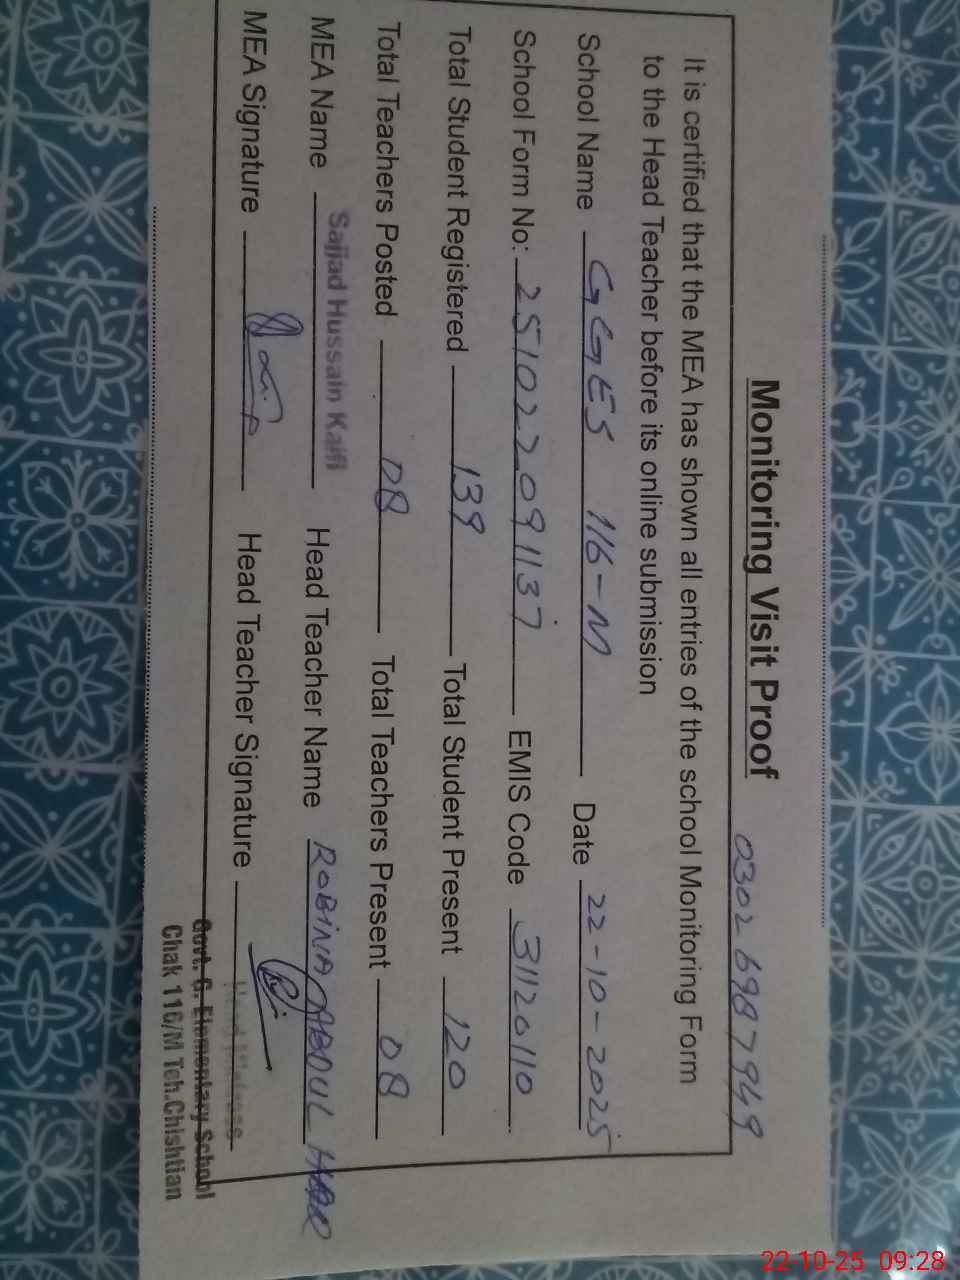 Monitoring Visit Proof 0302 6987949
It is certified that the MEA has shown all entries of the school Monitoring Form
to the Head Teacher before its online submission
School Name GGES 116-M Date 22-10-2025
School Form No: 2510227091137 EMIS Code 31120110
Total Student Registered 139 Total Student Present 120
Total Teachers Posted 08 Total Teachers Present 08
MEA Name Sajjad Hussain Kaifi Head Teacher Name ROBINA ABDUL
MEA Signature Head Teacher Signature
Head Mistress
Govt. G. Elementary School
Chak 116/M Teh.Chishtian
22-10-25 09:28